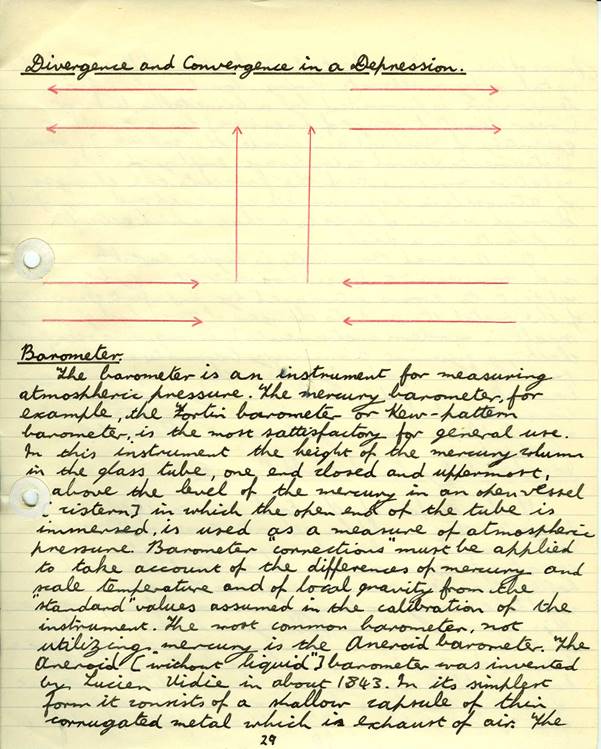 Divergence and Convergence in a Depression.
Barometer.
The barometer is an instrument for measuring
atmospheric pressure. The mercury barometer, for
example, the Fortin barometer or Kew-pattern
barometer, is the most sattisfactory for general use.
In this instrument the height of the mercury column
in the glass tube, one end closed and uppermost,
above the level of the mercury in an open vessel
[cistern] in which the open end of the tube is
immersed, is used as a measure of atmospheric
pressure. Barometer "corrections" must be applied
to take account of the differences of mercury and
scale temperature and of local gravity from the
"standard" values assumed in the calibration of the
instrument. The most common barometer, not
utilizing mercury is the Aneroid barometer. The
Aneroid ["without liquid"] barometer was invented
by Lucien Vidie in about 1843. In its simplest
form it consists of a shallow capsule of thin
corrugated metal which is exhaust of air. The
29